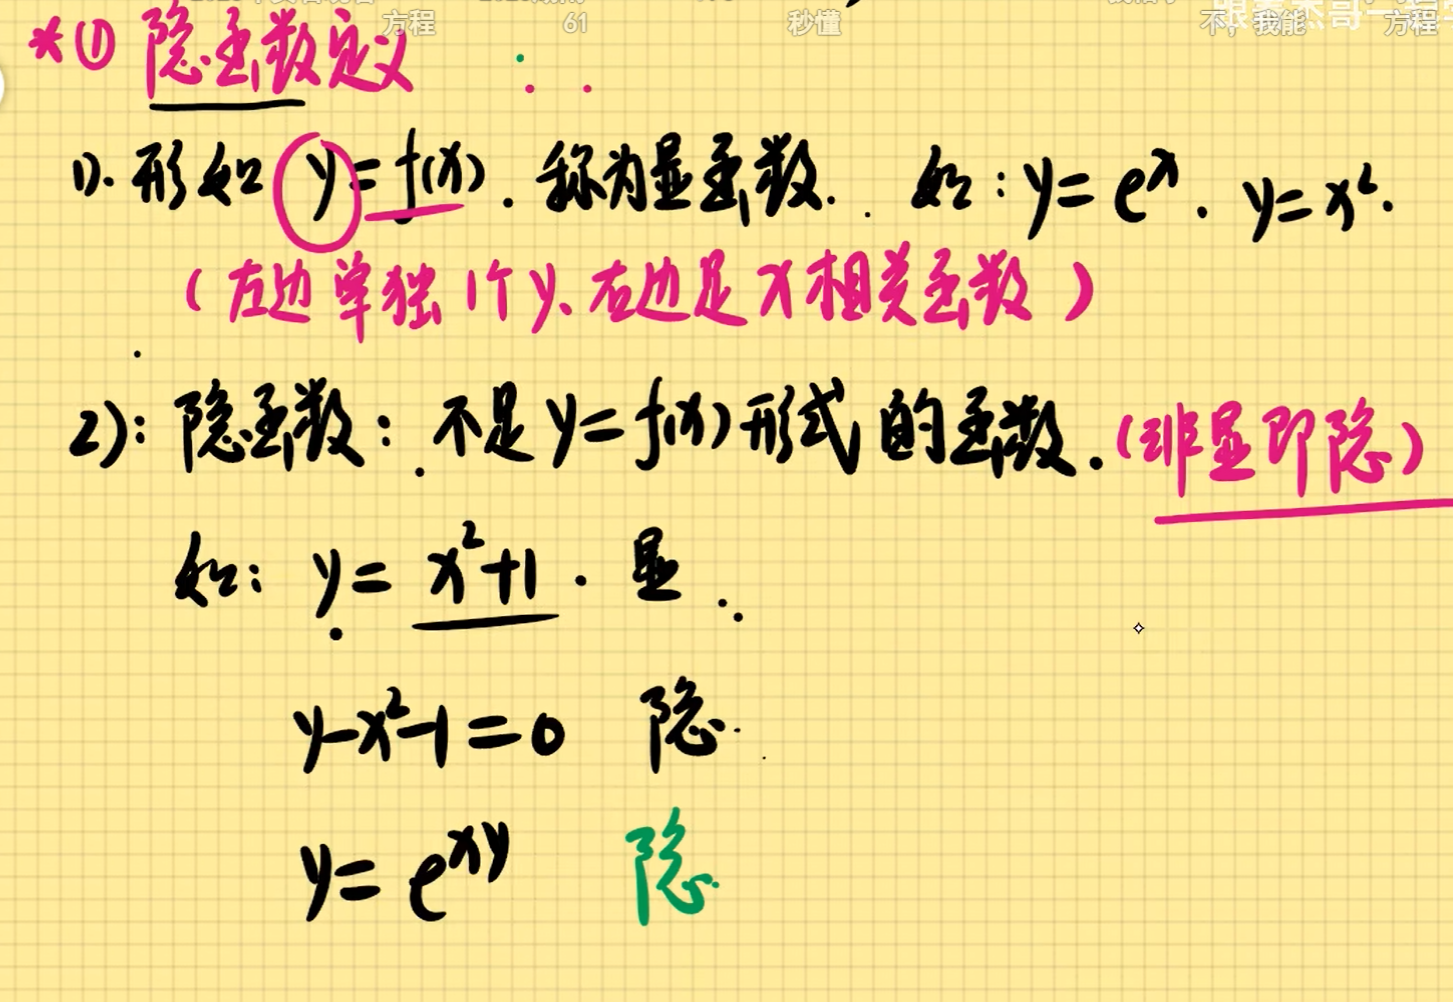 方程 61 秒懂 不，我能 方程
*① 隐函数定义
1). 形如 y=f(x). 称为显函数. 如: y=eˣ. y=x².
(左边单独1个y、右边是x相关函数)
2): 隐函数: 不是y=f(x)形式的函数. (非显即隐)
如: y=x²+1. 显
y-x²-1=0 隐
y=e^{xy} 隐